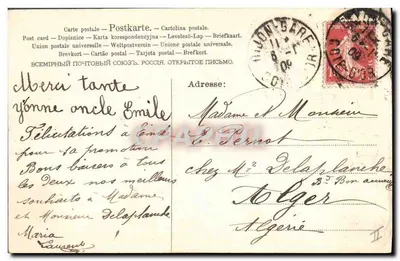 Carte postale — Postkarte. — Cartolina postale
Post card — Dopisnice — Karta korespondencyjna — Levelező-Lap — Briefkaart
Union postale universelle — Weltpostverein — Unione postale universale
Brevkort — Cartão postal — Tarjeta postal — Brefkort
ВСЕМІРНЫЙ ПОЧТОВЫЙ СОЮЗЪ. РОССІЯ. ОТКРЫТОЕ ПИСЬМО.
DIJON-GARE
09
Merci tante
Yonne oncle Emile
Félicitations à
pour sa promotion
Bons baisers à tous
les deux nos meilleurs
souhaits à Madame
et Monsieur Delaplanche
Maria
Laurent
Adresse:
Madame et Monsieur
E. Pernot
chez Mr Delaplanche
Bd Bon
Alger
Algérie
II